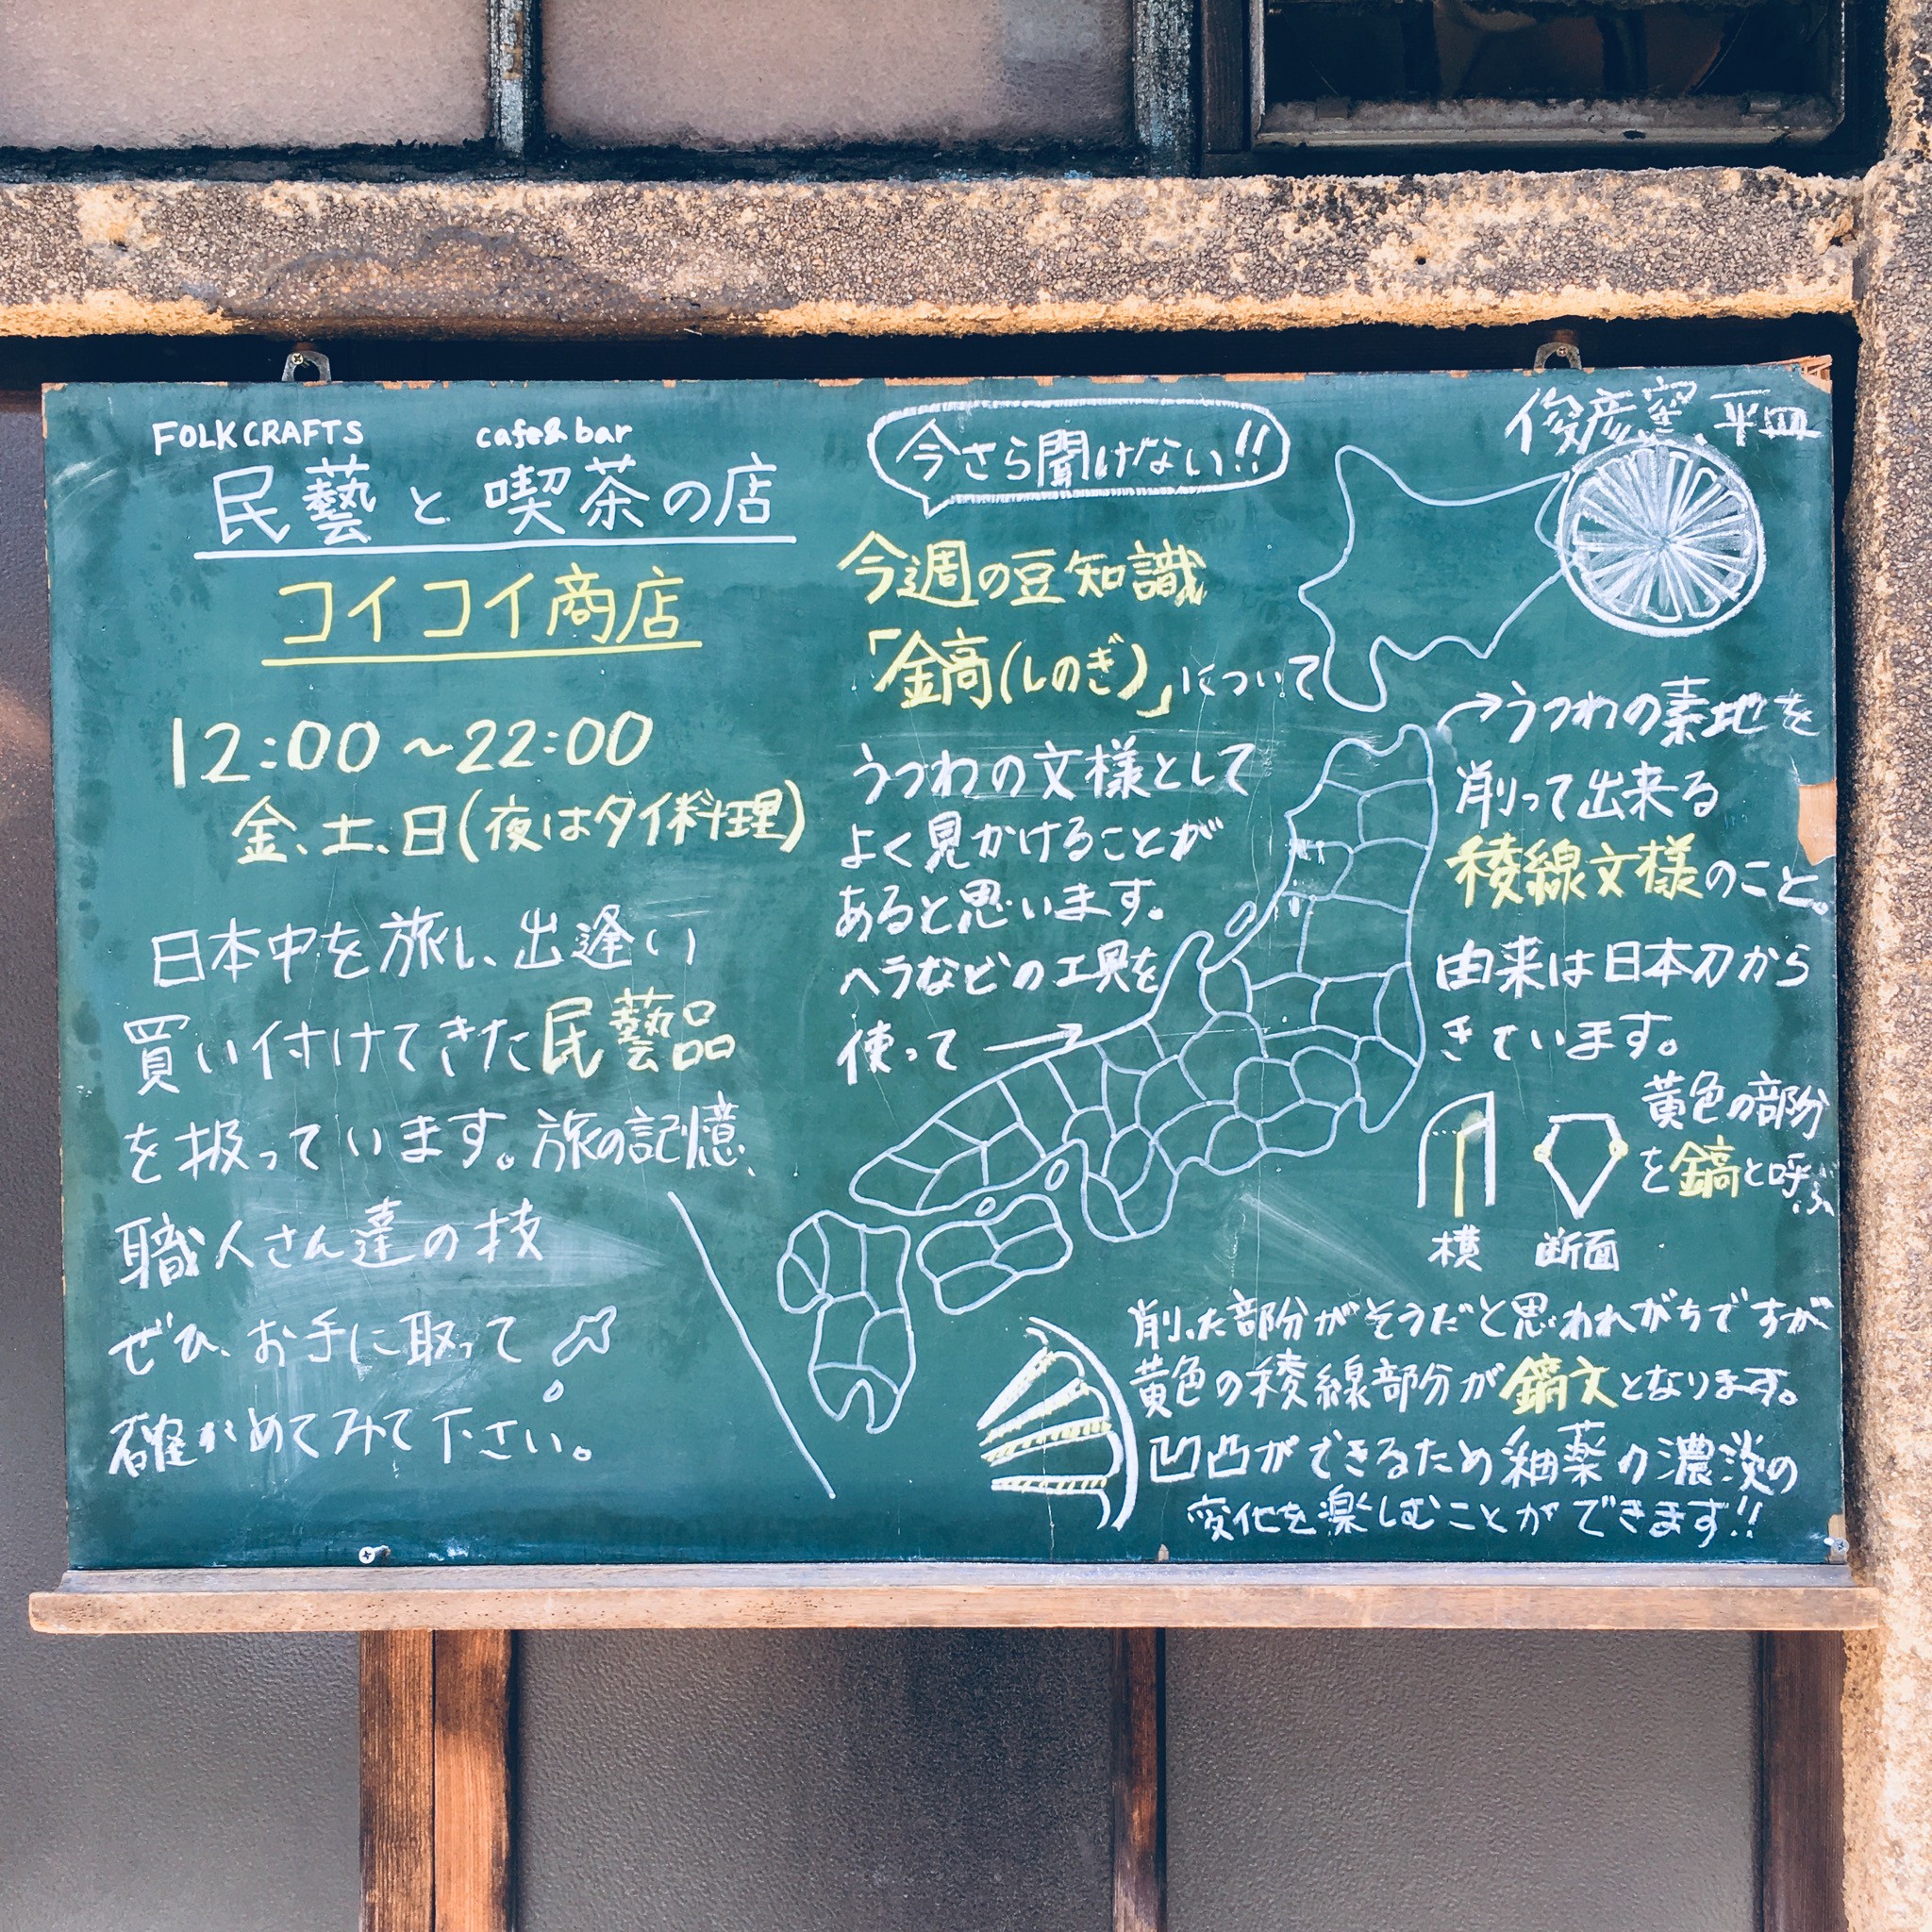 FOLKCRAFTS cafe&bar
民藝と喫茶の店
コイコイ商店
12:00～22:00
金、土、日(夜はタイ料理)
日本中を旅し、出逢い
買い付けてきた民藝品
を扱っています。旅の記憶、
職人さん達の技
ぜひ、お手に取って
確かめてみて下さい。
今さら聞けない!!
今週の豆知識
「鎬(しのぎ)」について
うつわの文様として
よく見かけることが
あると思います。
ヘラなどの工具を
使って→
俊彦窯 平皿
→うつわの素地を
削って出来る
稜線文様のこと。
由来は日本刀から
きています。
黄色の部分
を鎬と呼ぶ
横 断面
削った部分がそうだと思われがちですが
黄色の稜線部分が鎬文となります。
凹凸ができるため釉薬の濃淡の
変化を楽しむことができます!!